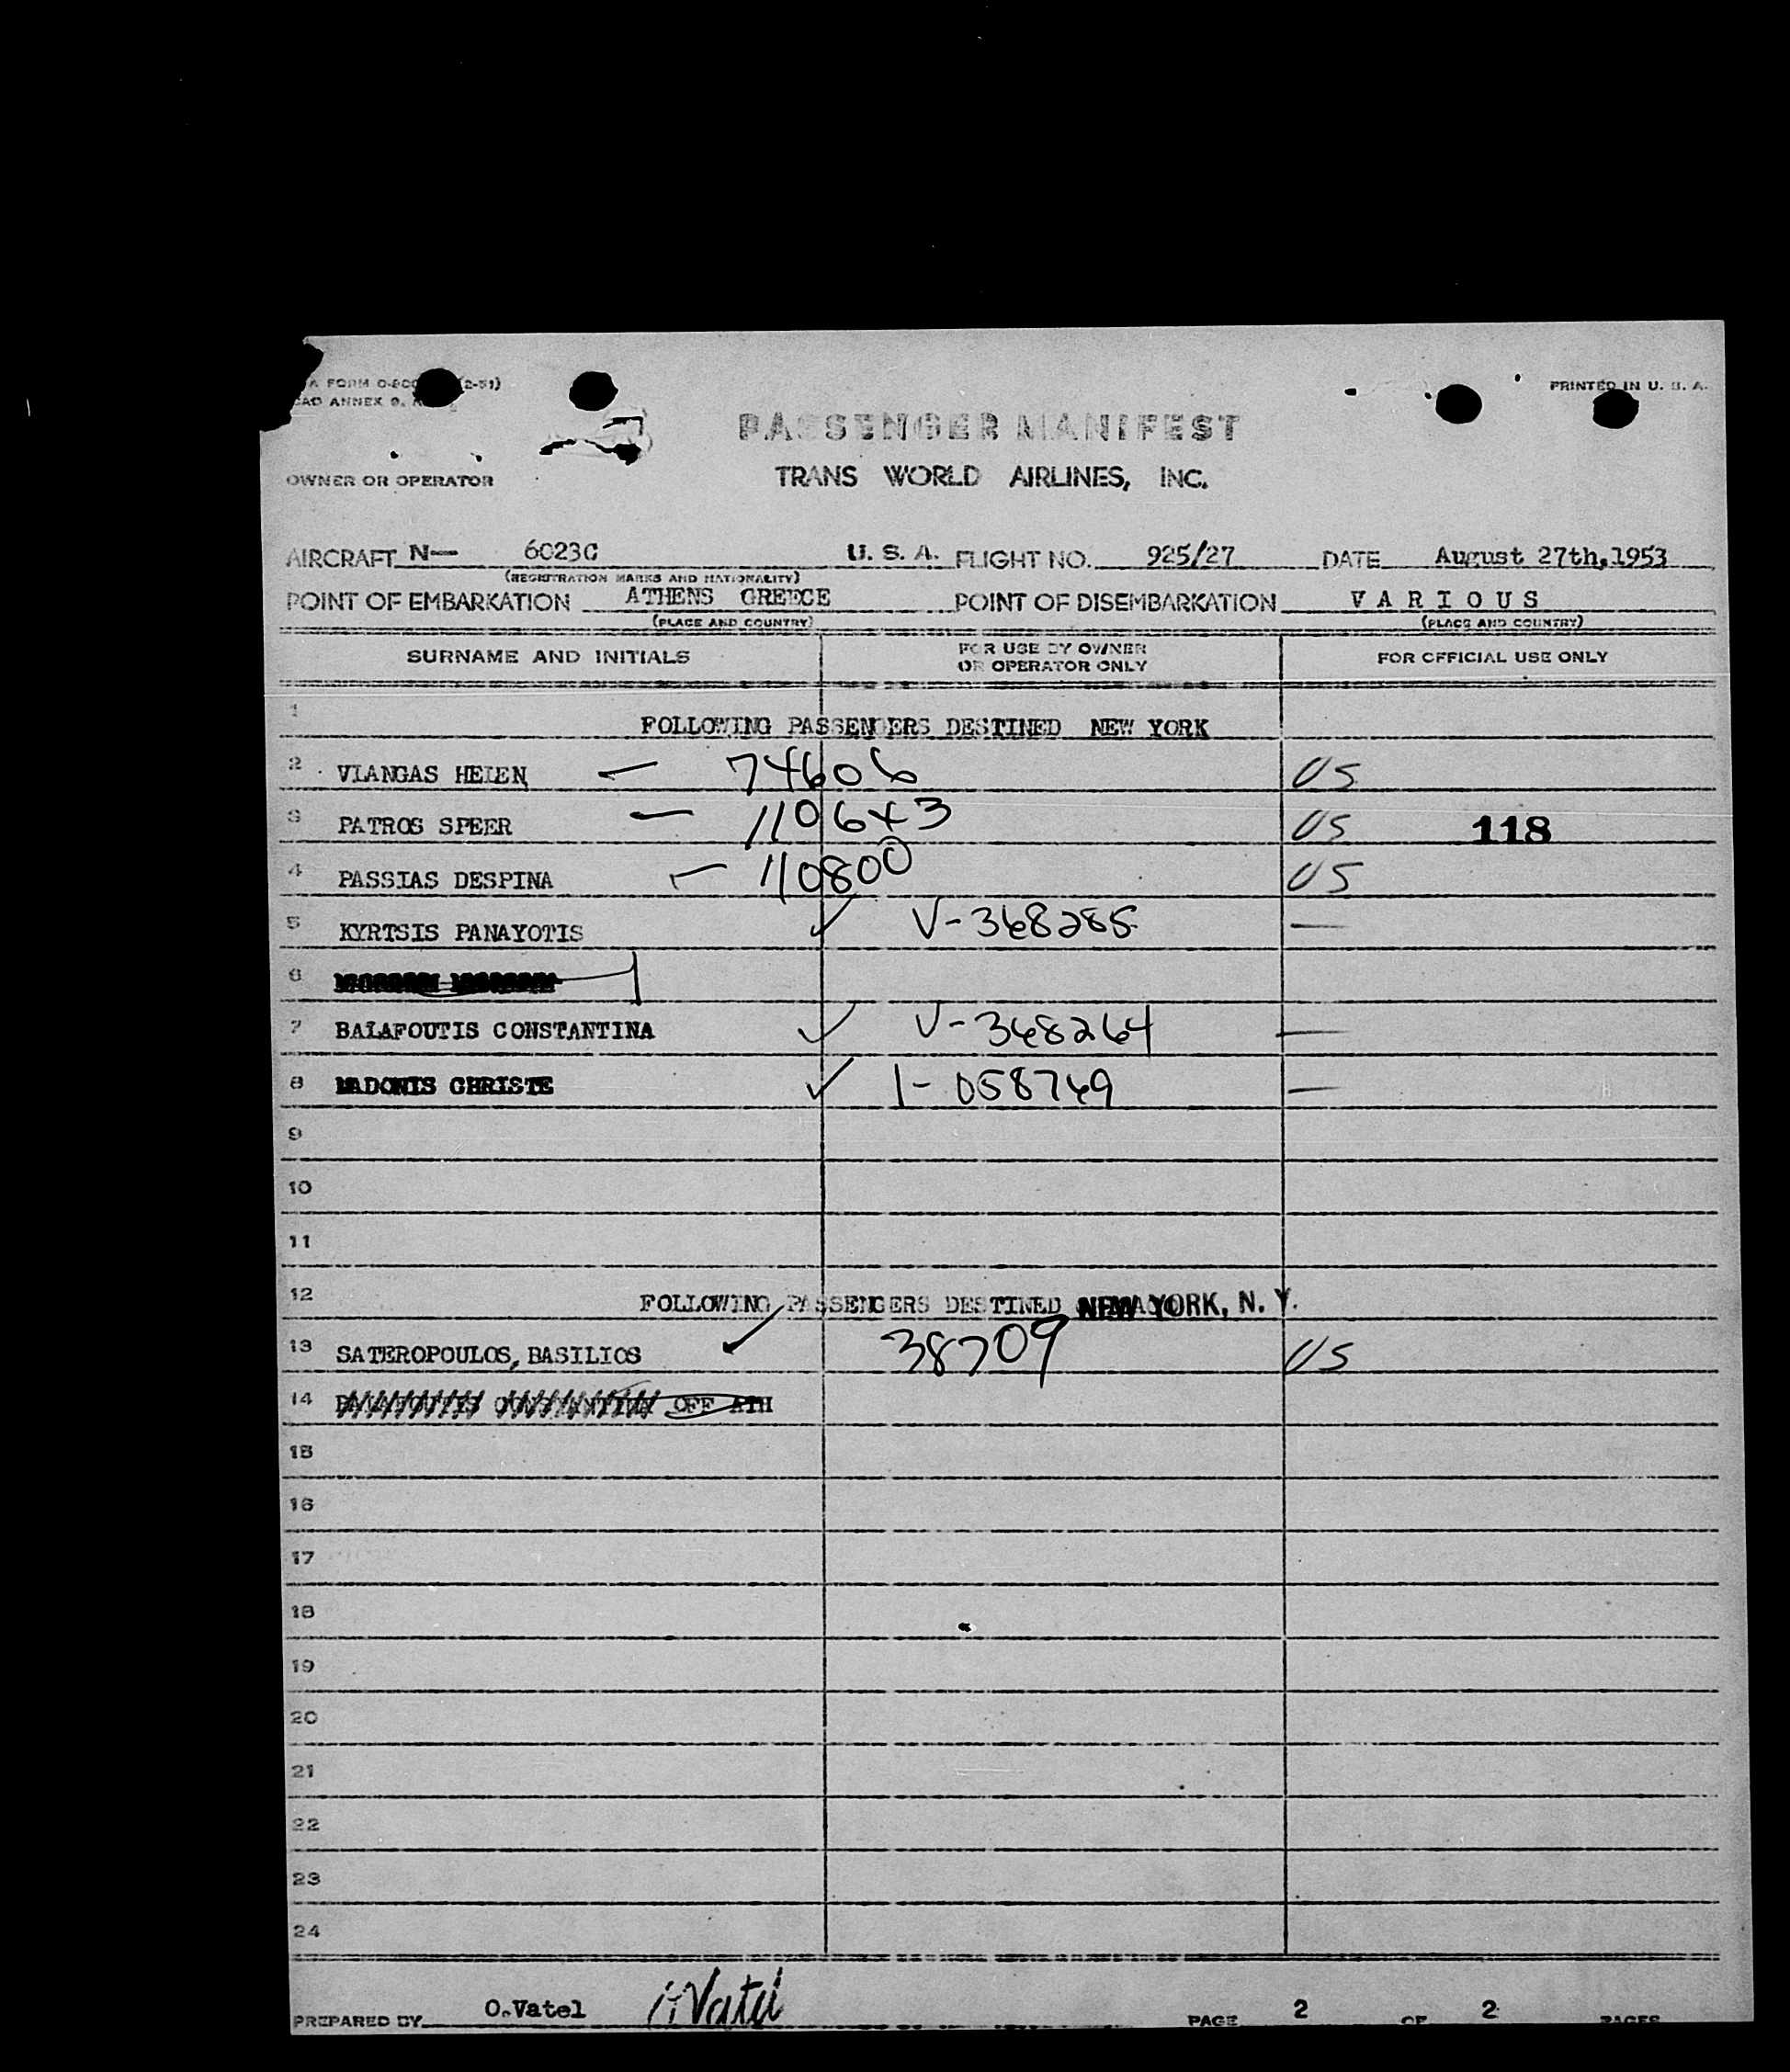 FORM O-800 (2-51)
PRINTED IN U. S. A.
ANNEX 9,
PASSENGER MANIFEST
OWNER OR OPERATOR TRANS WORLD AIRLINES, INC.
AIRCRAFT N— 6023C U. S. A. FLIGHT NO. 925/27 DATE August 27th,1953
(REGISTRATION MARKS AND NATIONALITY)
POINT OF EMBARKATION ATHENS GREECE POINT OF DISEMBARKATION V A R I O U S
(PLACE AND COUNTRY) (PLACE AND COUNTRY)
SURNAME AND INITIALS FOR USE BY OWNER OR OPERATOR ONLY FOR OFFICIAL USE ONLY
1 FOLLOWING PASSENGERS DESTINED NEW YORK
2 VLANGAS HELEN — 74606 US
3 PATROS SPEER — 110643 US 118
4 PASSIAS DESPINA — 110800 US
5 KYRTSIS PANAYOTIS ✓ V-368285 —
6
7 BALAFOUTIS CONSTANTINA ✓ V-368264 —
8 MADONIS CHRISTE ✓ I-058769 —
9
10
11
12 FOLLOWING PASSENGERS DESTINED NEW YORK, N. Y.
13 SATEROPOULOS, BASILIOS ✓ 38709 US
14 OFF ATH
15
16
17
18
19
20
21
22
23
24
PREPARED BY O.Vatel O Vatel PAGE 2 OF 2 PAGES